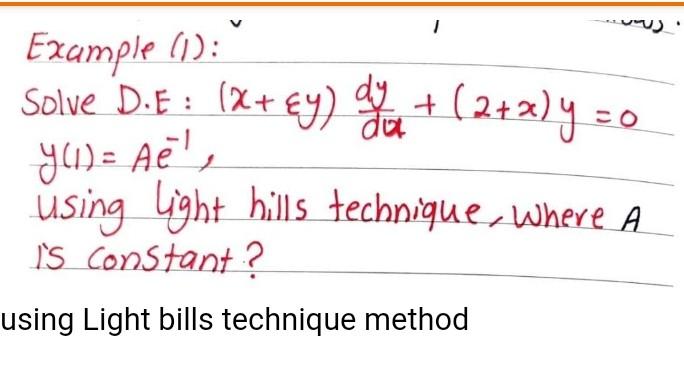 Example (1):
Solve D.E : (x + εy) dy/dx + (2+x)y = 0
y(1) = Ae⁻¹,
using Light hills technique, where A
is constant?
using Light bills technique method